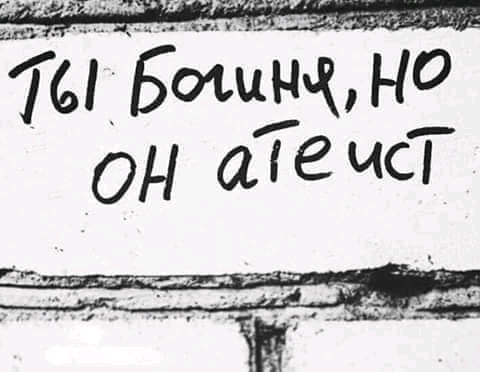 Ты Богиня, но
он атеист